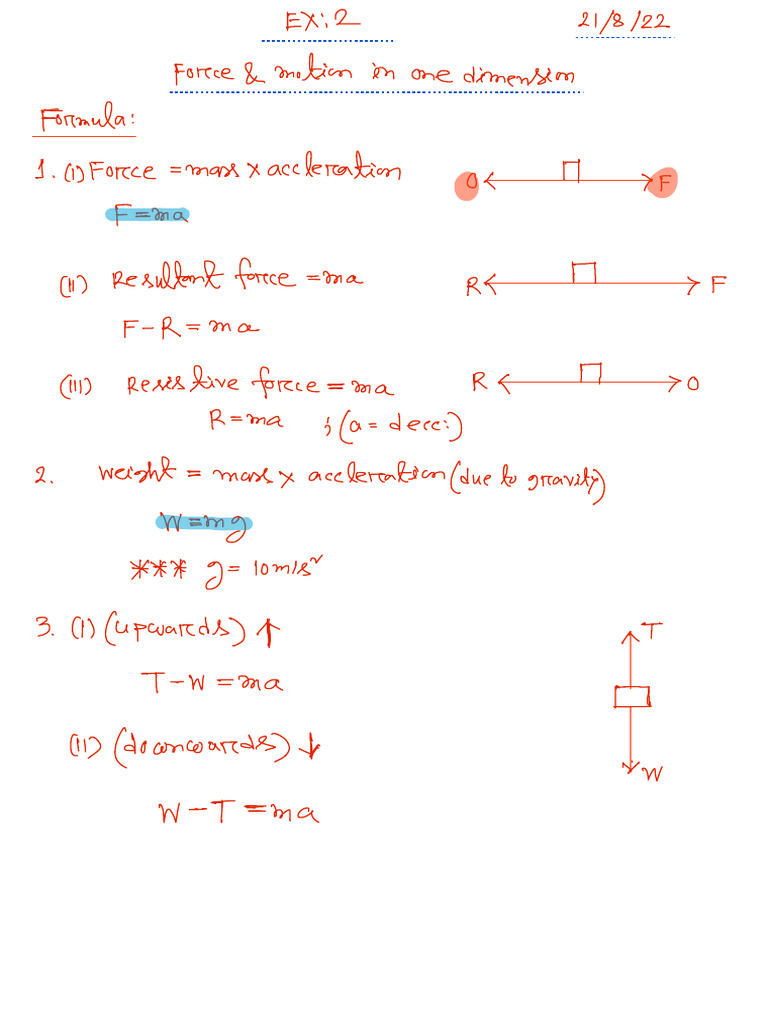 EX:2
21/8/22
Force & motion in one dimension
Formula:
1. (i) Force = mass x accleration
O F
F = ma
(ii) Resultant force = ma
R F
F - R = ma
(iii) Resistive force = ma
R O
R = ma ; (a = decc:)
2. Weight = mass x accleration (due to gravity)
W = mg
*** g = 10 m/s²
3. (i) (upwards) ↑
T
T - W = ma
(ii) (downwards) ↓
W
W - T = ma